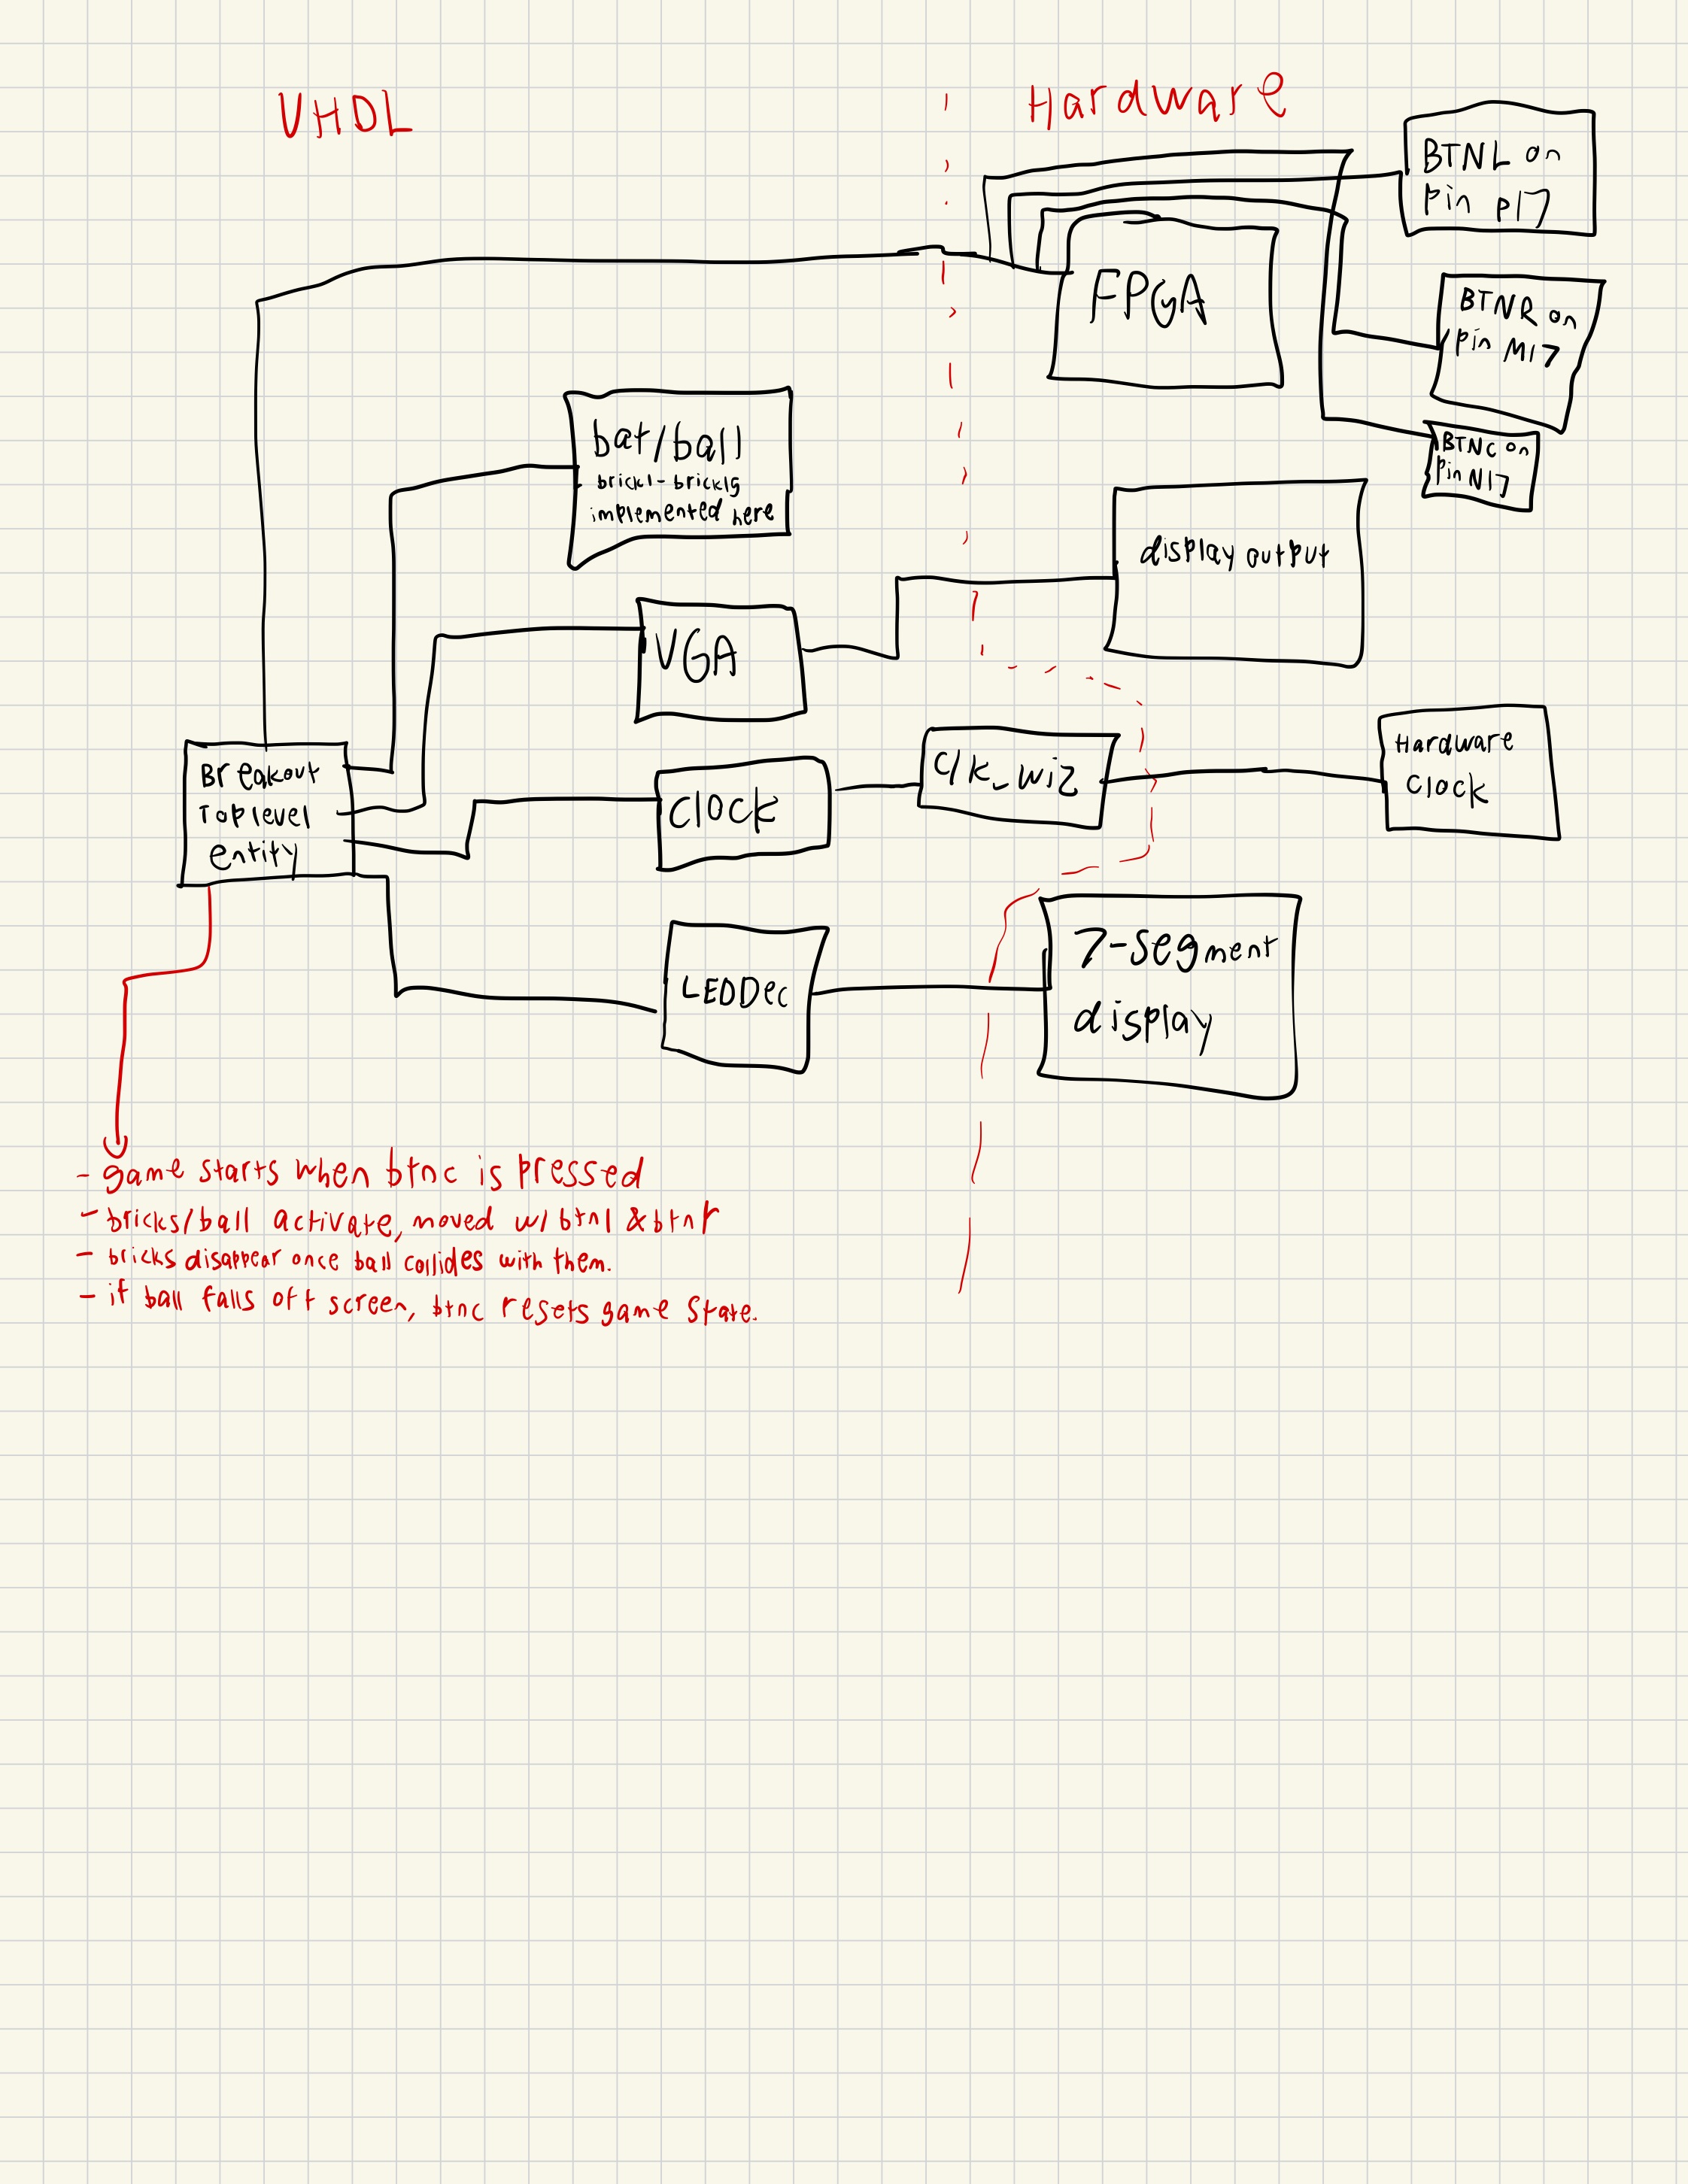 VHDL
Hardware
BTNL on
pin p17
FPGA
BTNR on
pin M17
BTNC on
pin N17
bat/ball
brick1-brick19
implemented here
display output
VGA
Breakout
Top level
entity
clock
clk_wiz
Hardware
clock
LEDDec
7-segment
display
- game starts when btnc is pressed
- bricks/ball activate, moved w/ btnl & btnr
- bricks disappear once ball collides with them.
- if ball falls off screen, btnc resets game state.